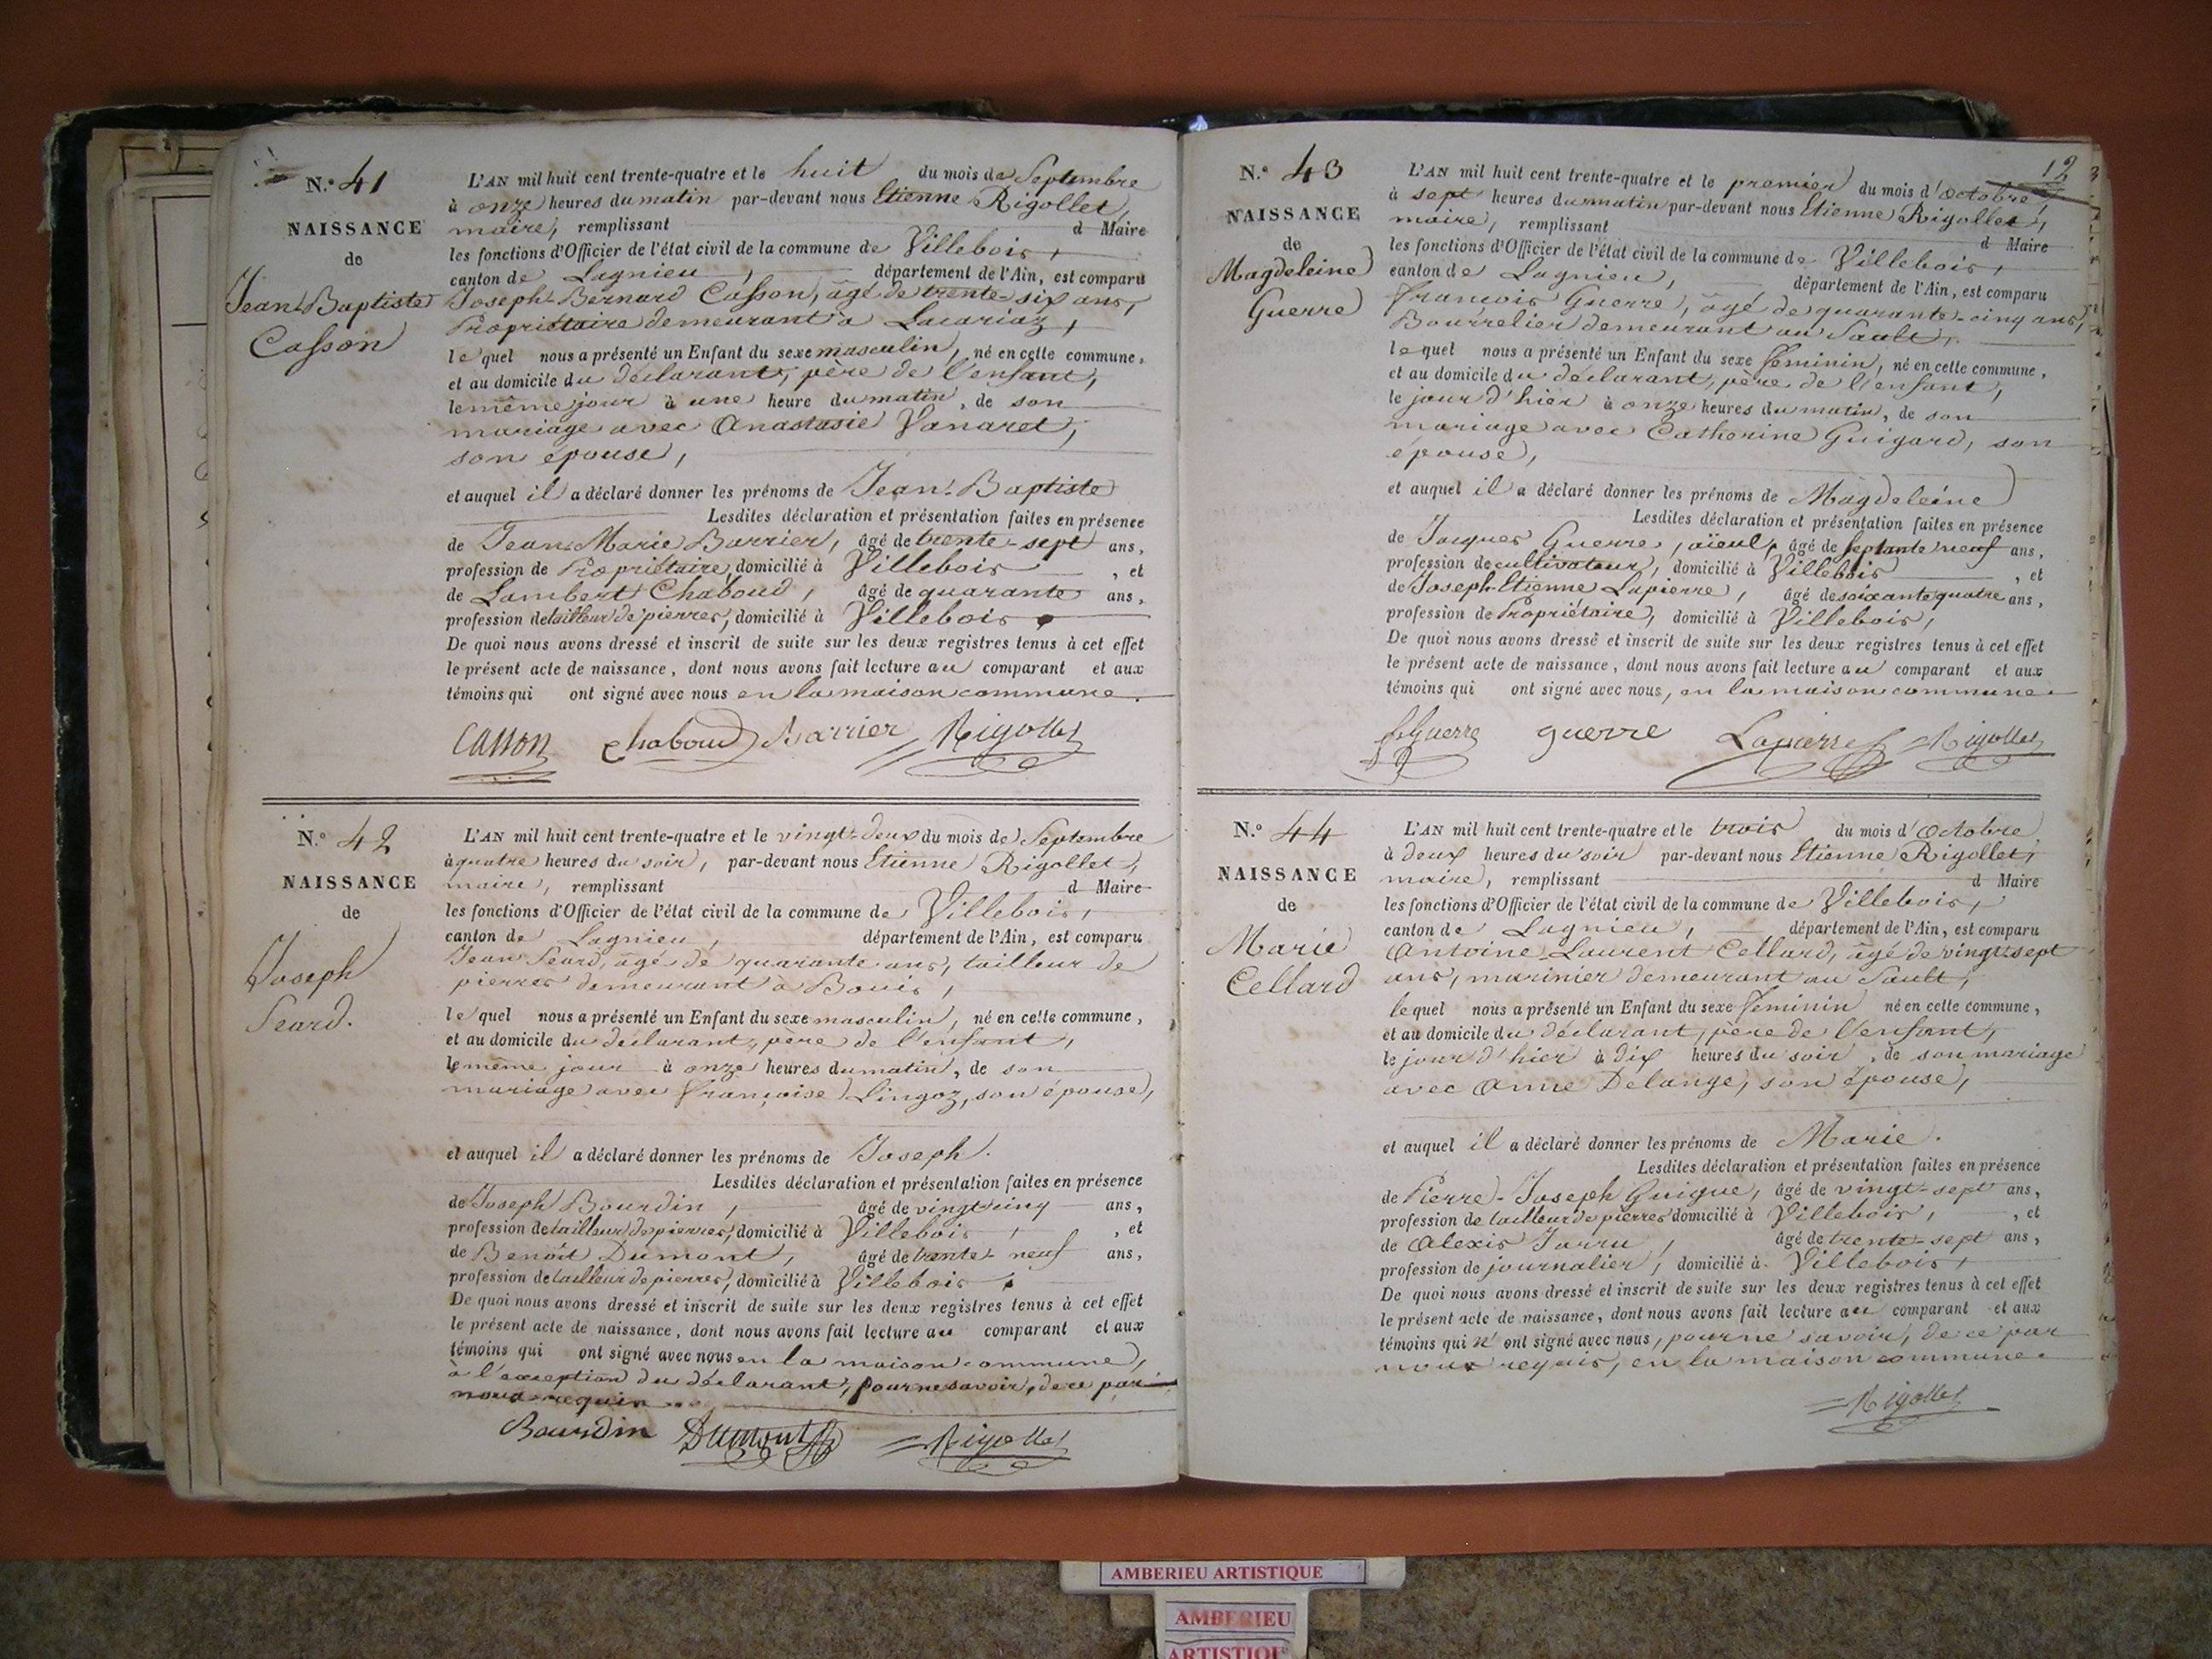 N.° 41
NAISSANCE
de
Jean-Baptiste
Casson
L'AN mil huit cent trente-quatre et le huit du mois de Septembre
à onze heures du matin par-devant nous Etienne Rigollet,
maire, remplissant d Maire
les fonctions d'Officier de l'état civil de la commune de Villebois,
canton de Lagnieu, département de l'Ain, est comparu
Joseph-Bernard Casson, âgé de trente-six ans,
Propriétaire demeurant à Lacariaz,
lequel nous a présenté un Enfant du sexe masculin, né en cette commune,
et au domicile du déclarant, père de l'enfant,
le même jour à une heure du matin, de son
mariage avec Anastasie Vanaret,
son épouse,
et auquel il a déclaré donner les prénoms de Jean-Baptiste
Lesdites déclaration et présentation faites en présence
de Jean-Marie Barrier, âgé de trente-sept ans,
profession de Propriétaire, domicilié à Villebois, et
de Lambert Chaboud, âgé de quarante ans,
profession de tailleur de pierres, domicilié à Villebois
De quoi nous avons dressé et inscrit de suite sur les deux registres tenus à cet effet
le présent acte de naissance, dont nous avons fait lecture au comparant et aux
témoins qui ont signé avec nous en la maison commune.
Casson Chaboud Barrier Rigollet
N.° 42
NAISSANCE
de
Joseph
Seard.
L'AN mil huit cent trente-quatre et le vingt-deux du mois de Septembre
à quatre heures du soir, par-devant nous Etienne Rigollet,
maire, remplissant d Maire
les fonctions d'Officier de l'état civil de la commune de Villebois,
canton de Lagnieu, département de l'Ain, est comparu
Jean Seard, âgé de quarante ans, tailleur de
pierres demeurant à Bouis,
lequel nous a présenté un Enfant du sexe masculin, né en cette commune,
et au domicile du déclarant, père de l'enfant,
le même jour à onze heures du matin, de son
mariage avec françoise Lingoz, son épouse,
et auquel il a déclaré donner les prénoms de Joseph.
Lesdites déclaration et présentation faites en présence
de Joseph Bourdin, âgé de vingt-cinq ans,
profession de tailleur de pierres, domicilié à Villebois, et
de Benoît Dumont, âgé de trente-neuf ans,
profession de tailleur de pierres, domicilié à Villebois
De quoi nous avons dressé et inscrit de suite sur les deux registres tenus à cet effet
le présent acte de naissance, dont nous avons fait lecture au comparant et aux
témoins qui ont signé avec nous en la maison commune,
à l'exception du déclarant, pour ne savoir, de ce par
nous requis
Bourdin Dumont Rigollet
12
N.° 43
NAISSANCE
de
Magdeleine
Guerre
L'AN mil huit cent trente-quatre et le premier du mois d'Octobre,
à sept heures du matin par-devant nous Etienne Rigollet,
maire, remplissant d Maire
les fonctions d'Officier de l'état civil de la commune de Villebois,
canton de Lagnieu, département de l'Ain, est comparu
françois Guerre, âgé de quarante-cinq ans,
Bourrelier demeurant au Sault,
lequel nous a présenté un Enfant du sexe féminin, né en cette commune,
et au domicile du déclarant, père de l'enfant,
le jour d'hier à onze heures du matin, de son
mariage avec Catherine Guigard, son
épouse,
et auquel il a déclaré donner les prénoms de Magdeleine
Lesdites déclaration et présentation faites en présence
de Jacques Guerre, aïeul, âgé de septante neuf ans,
profession de cultivateur, domicilié à Villebois, et
de Joseph-Etienne Lapierre, âgé de soixante quatre ans,
profession de Propriétaire, domicilié à Villebois,
De quoi nous avons dressé et inscrit de suite sur les deux registres tenus à cet effet
le présent acte de naissance, dont nous avons fait lecture au comparant et aux
témoins qui ont signé avec nous, en la maison commune
Guerre guerre Lapierre Rigollet
N.° 44
NAISSANCE
de
Marie
Cellard
L'AN mil huit cent trente-quatre et le trois du mois d'Octobre
à deux heures du soir par-devant nous Etienne Rigollet,
maire, remplissant d Maire
les fonctions d'Officier de l'état civil de la commune de Villebois,
canton de Lagnieu, département de l'Ain, est comparu
Antoine-Laurent Cellard, âgé de vingt-sept
ans, marinier demeurant au Sault,
lequel nous a présenté un Enfant du sexe féminin né en cette commune,
et au domicile du déclarant, père de l'enfant,
le jour d'hier à dix heures du soir, de son mariage
avec Anne Delange, son épouse,
et auquel il a déclaré donner les prénoms de Marie.
Lesdites déclaration et présentation faites en présence
de Pierre-Joseph Guigue, âgé de vingt-sept ans,
profession de tailleur de pierres domicilié à Villebois, et
de Alexis Jarru, âgé de trente-sept ans,
profession de journalier, domicilié à Villebois,
De quoi nous avons dressé et inscrit de suite sur les deux registres tenus à cet effet
le présent acte de naissance, dont nous avons fait lecture au comparant et aux
témoins qui n'ont signé avec nous, pour ne savoir, de ce par
nous requis, en la maison commune
Rigollet
AMBERIEU ARTISTIQUE
AMBERIEU
ARTISTIQUE